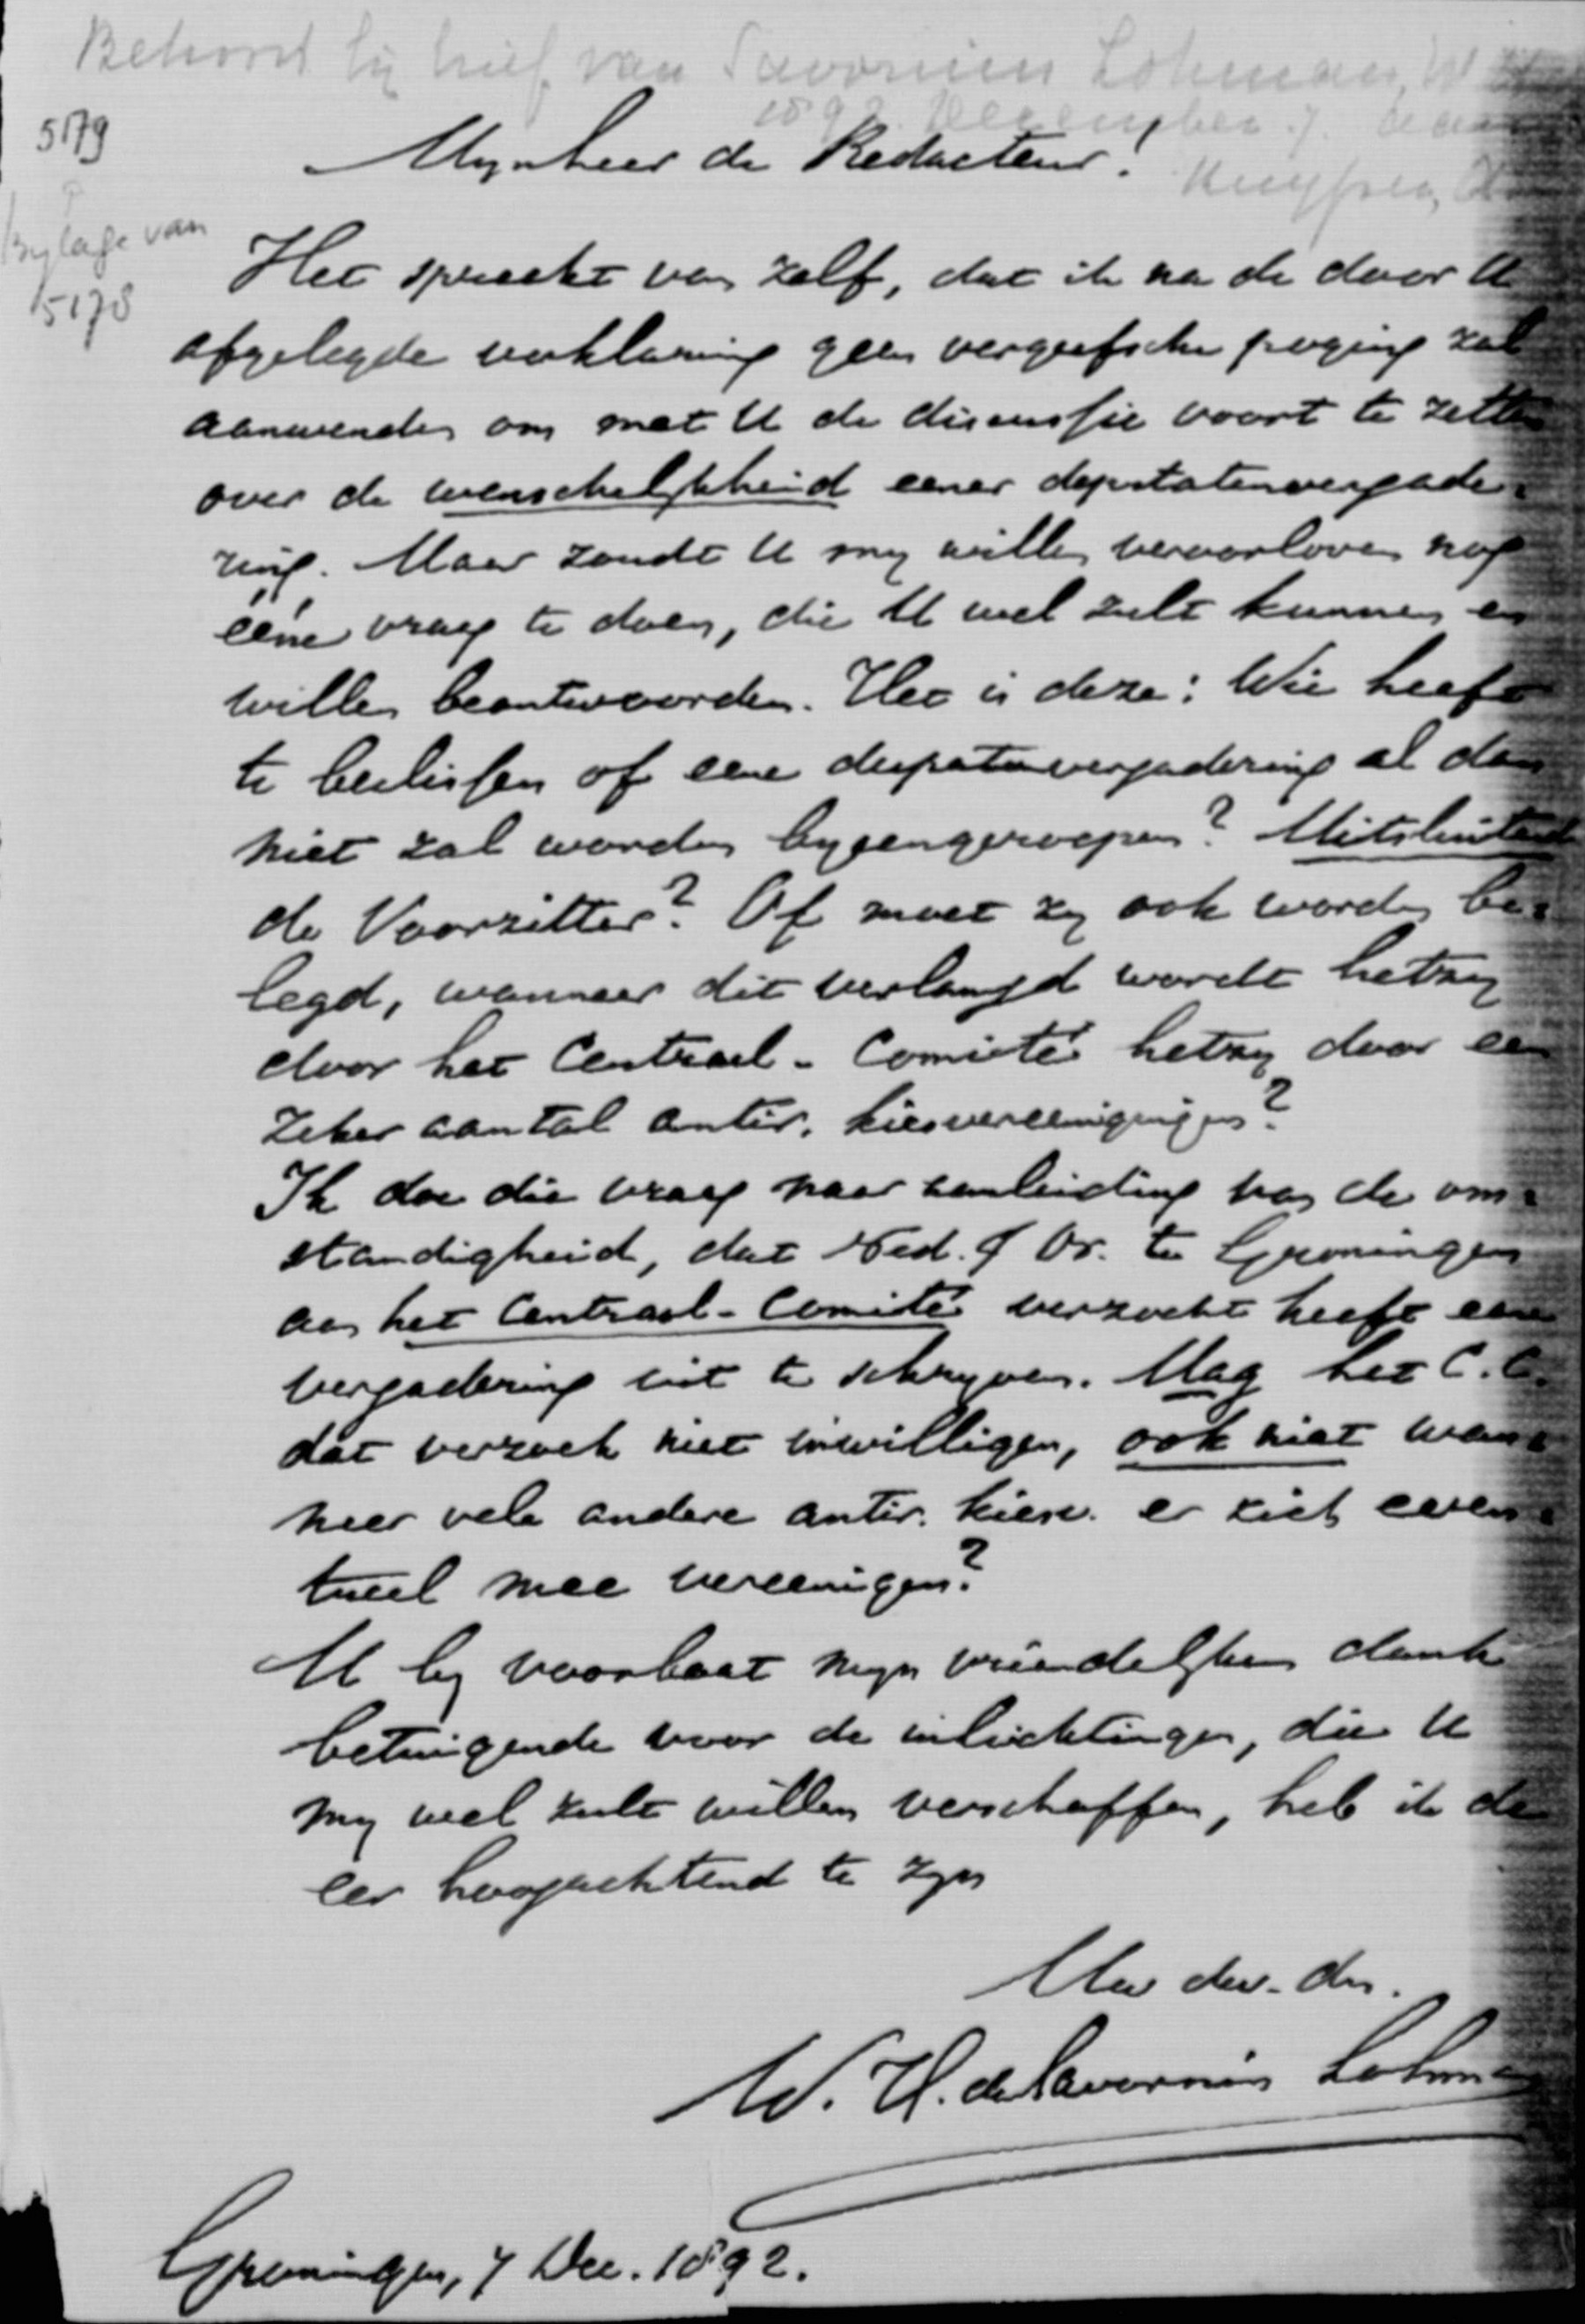 Behoort bij brief van Savornin Lohman, W H
1892 December 7. aan
5179
Mynheer de Redacteur!
Kuyper, A
Bylage van
5178
Het spreekt van zelf, dat ik na de door U
afgelegde verklaring geen vergeefsche poging zal
aanwenden om met U de discussie voort te zetten
over de wenschelykheid eener deputatenvergade-
ring. Maar zoudt U my willen veroorloven nog
ééne vraag te doen, die U wel zult kunnen en
willen beantwoorden. Het is deze: Wie heeft
te beslissen of eene deputatenvergadering al dan
niet zal worden byeengeroepen? Uitsluitend
de Voorzitter? Of moet zy ook worden be-
legd, wanneer dit verlangd wordt hetzy
door het Centraal-Comité hetzy door een
zeker aantal antir. kiesvereenigingen?
Ik doe die vraag naar aanleiding van de om-
standigheid, dat Ned. & Or. te Groningen
aan het Centraal-Comité verzocht heeft eene
vergadering uit te schryven. Mag het C.C.
dat verzoek niet inwilligen, ook niet wan-
neer vele andere antir. kiesv. er zich even-
tueel mee vereenigen?
U by voorbaat myn vriendelyken dank
betuigende voor de inlichtingen, die U
my wel zult willen verschaffen, heb ik de
eer hoogachtend te zyn
Uw dw. dn.
W. H. de Savornin Lohman
Groningen, 7 Dec. 1892.